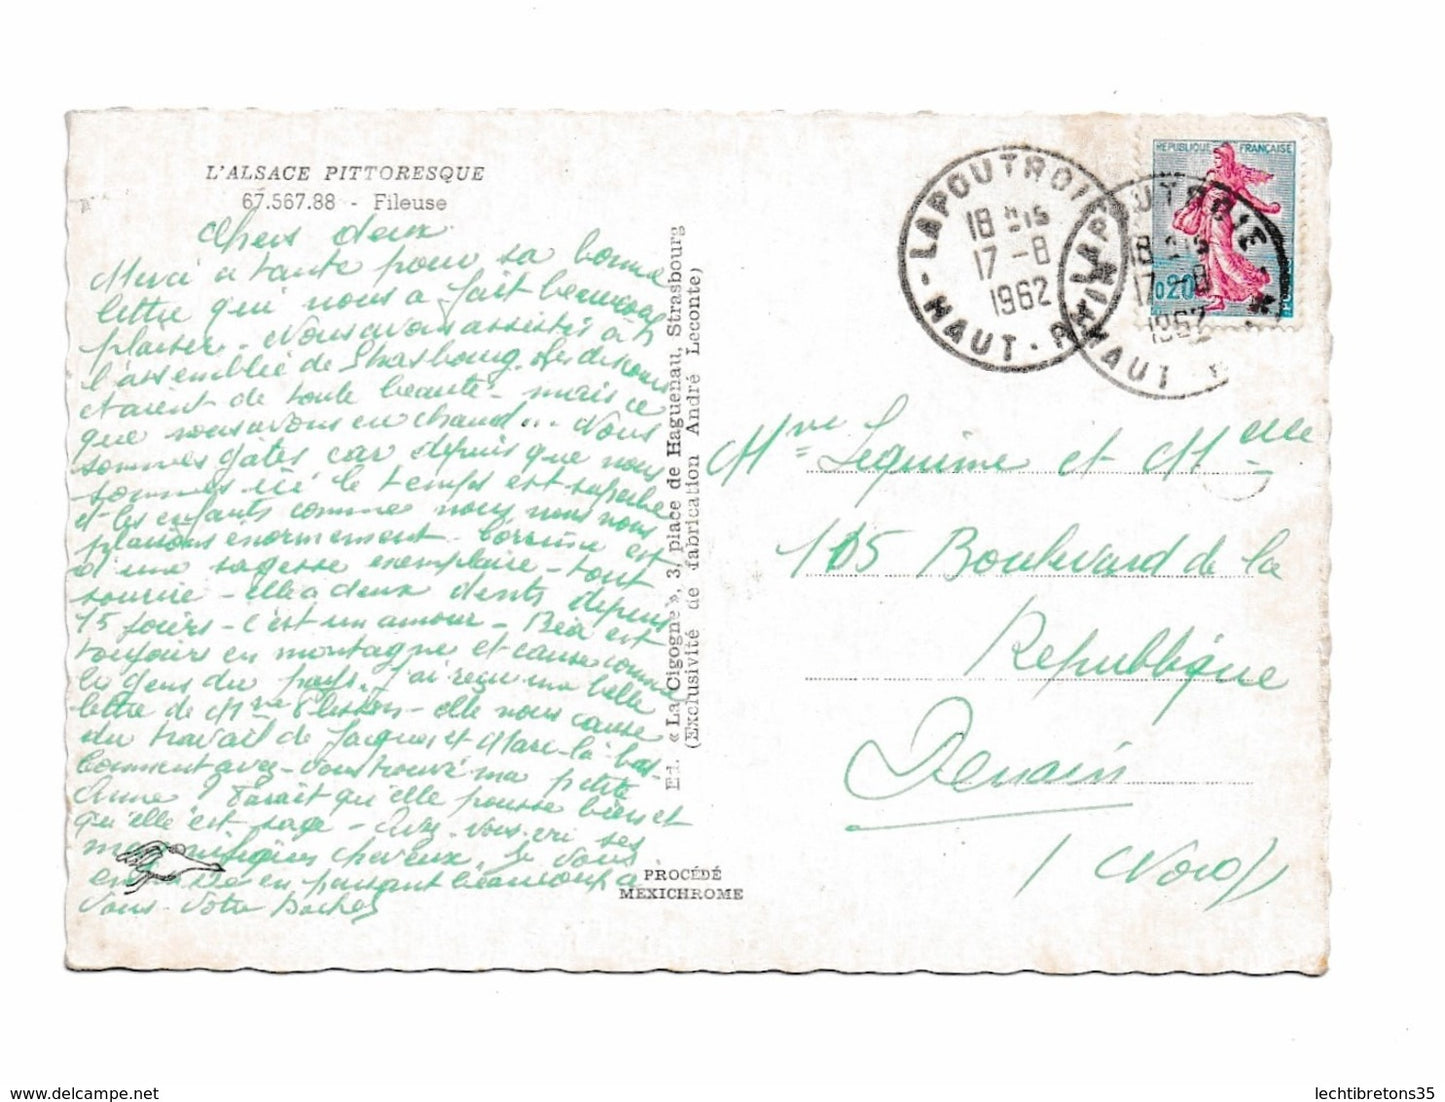 L'ALSACE PITTORESQUE
67.567.88 - Fileuse
Chers deux
Merci a tante pour sa bonne
lettre qui nous a fait beaucoup
plaisir. Nous avons assisté à
l'assemblée de Strasbourg. Les discours
étaient de toute beauté - mais ce
que nous avons eu chaud... Nous
sommes gâtés car depuis que nous
sommes ici le temps est superbe
et les enfants comme nous nous nous
plaisons énormement. Corinne est
d'une sagesse exemplaire - tout
sourire - elle a deux dents depuis
15 jours - c'est un amour - Béa est
toujours en montagne et cause comme
les gens du pays. J'ai reçu une belle
lettre de Mme - elle nous cause
du travail de Jacques et Marc là-bas.
Comment avez-vous trouvé ma petite
Anne ? Parait qu'elle pousse bien et
qu'elle est sage - Avez-vous vu ses
magnifiques cheveux. Je vous
embrasse en pensant beaucoup à
vous. Votre
Ed. « La Cigogne », 3, place de Haguenau, Strasbourg
(Exclusivité de fabrication André Leconte)
PROCÉDÉ
MEXICHROME
LAPOUTROIE
18 H 15
17 - 8
1962
HAUT - RHIN
LAPOUTROIE
18 H 15
17 - 8
1962
HAUT
REPUBLIQUE FRANÇAISE
0,20
Mme Lequime et Melle
115 Boulevard de la
République
Denain
(Nord)
www.delcampe.net
lechtibretons35